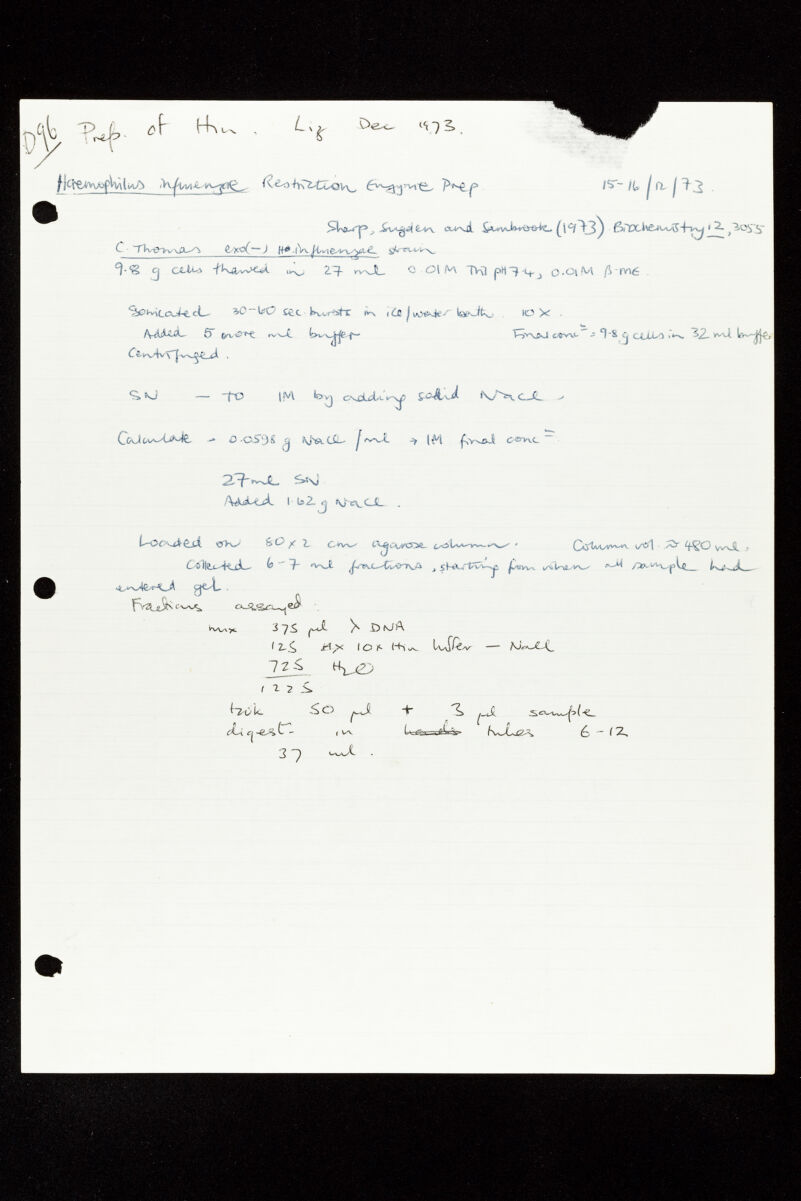 D96 Prep. of Hin. Liz Dec 1973.
Haemophilus influenzae Restriction Enzyme Prep. 15-16/12/73.
Sharp, Sugden and Sambrook (1973) Biochemistry 12, 3055
C. Thomas exo(-) H. influenzae strain
9.8 g cells thawed in 27 ml 0.01M Tris pH 7.4, 0.01M β-ME.
Sonicated 30-60 sec. bursts in ice/water bath. 10 X.
Added 5 more ml buffer Final concⁿ = 9.8 g cells in 32 ml buffer
Centrifuged.
SN — to 1M by adding solid NaCl.
Calculate - 0.0598 g NaCl/ml → 1M final concⁿ.
27 ml SN.
Added 1.62 g NaCl.
Loaded on 80 x 2 cm agarose column. Column vol. ≈ 480 ml.
Collected 6-7 ml fractions, starting from when all sample had
entered gel.
Fractions assayed:
mix 375 µl λ DNA
125 10x Hin buffer - NaCl
725 H2O
1225
took 50 µl + 3 µl sample
digest in tubes 6-12
37 .